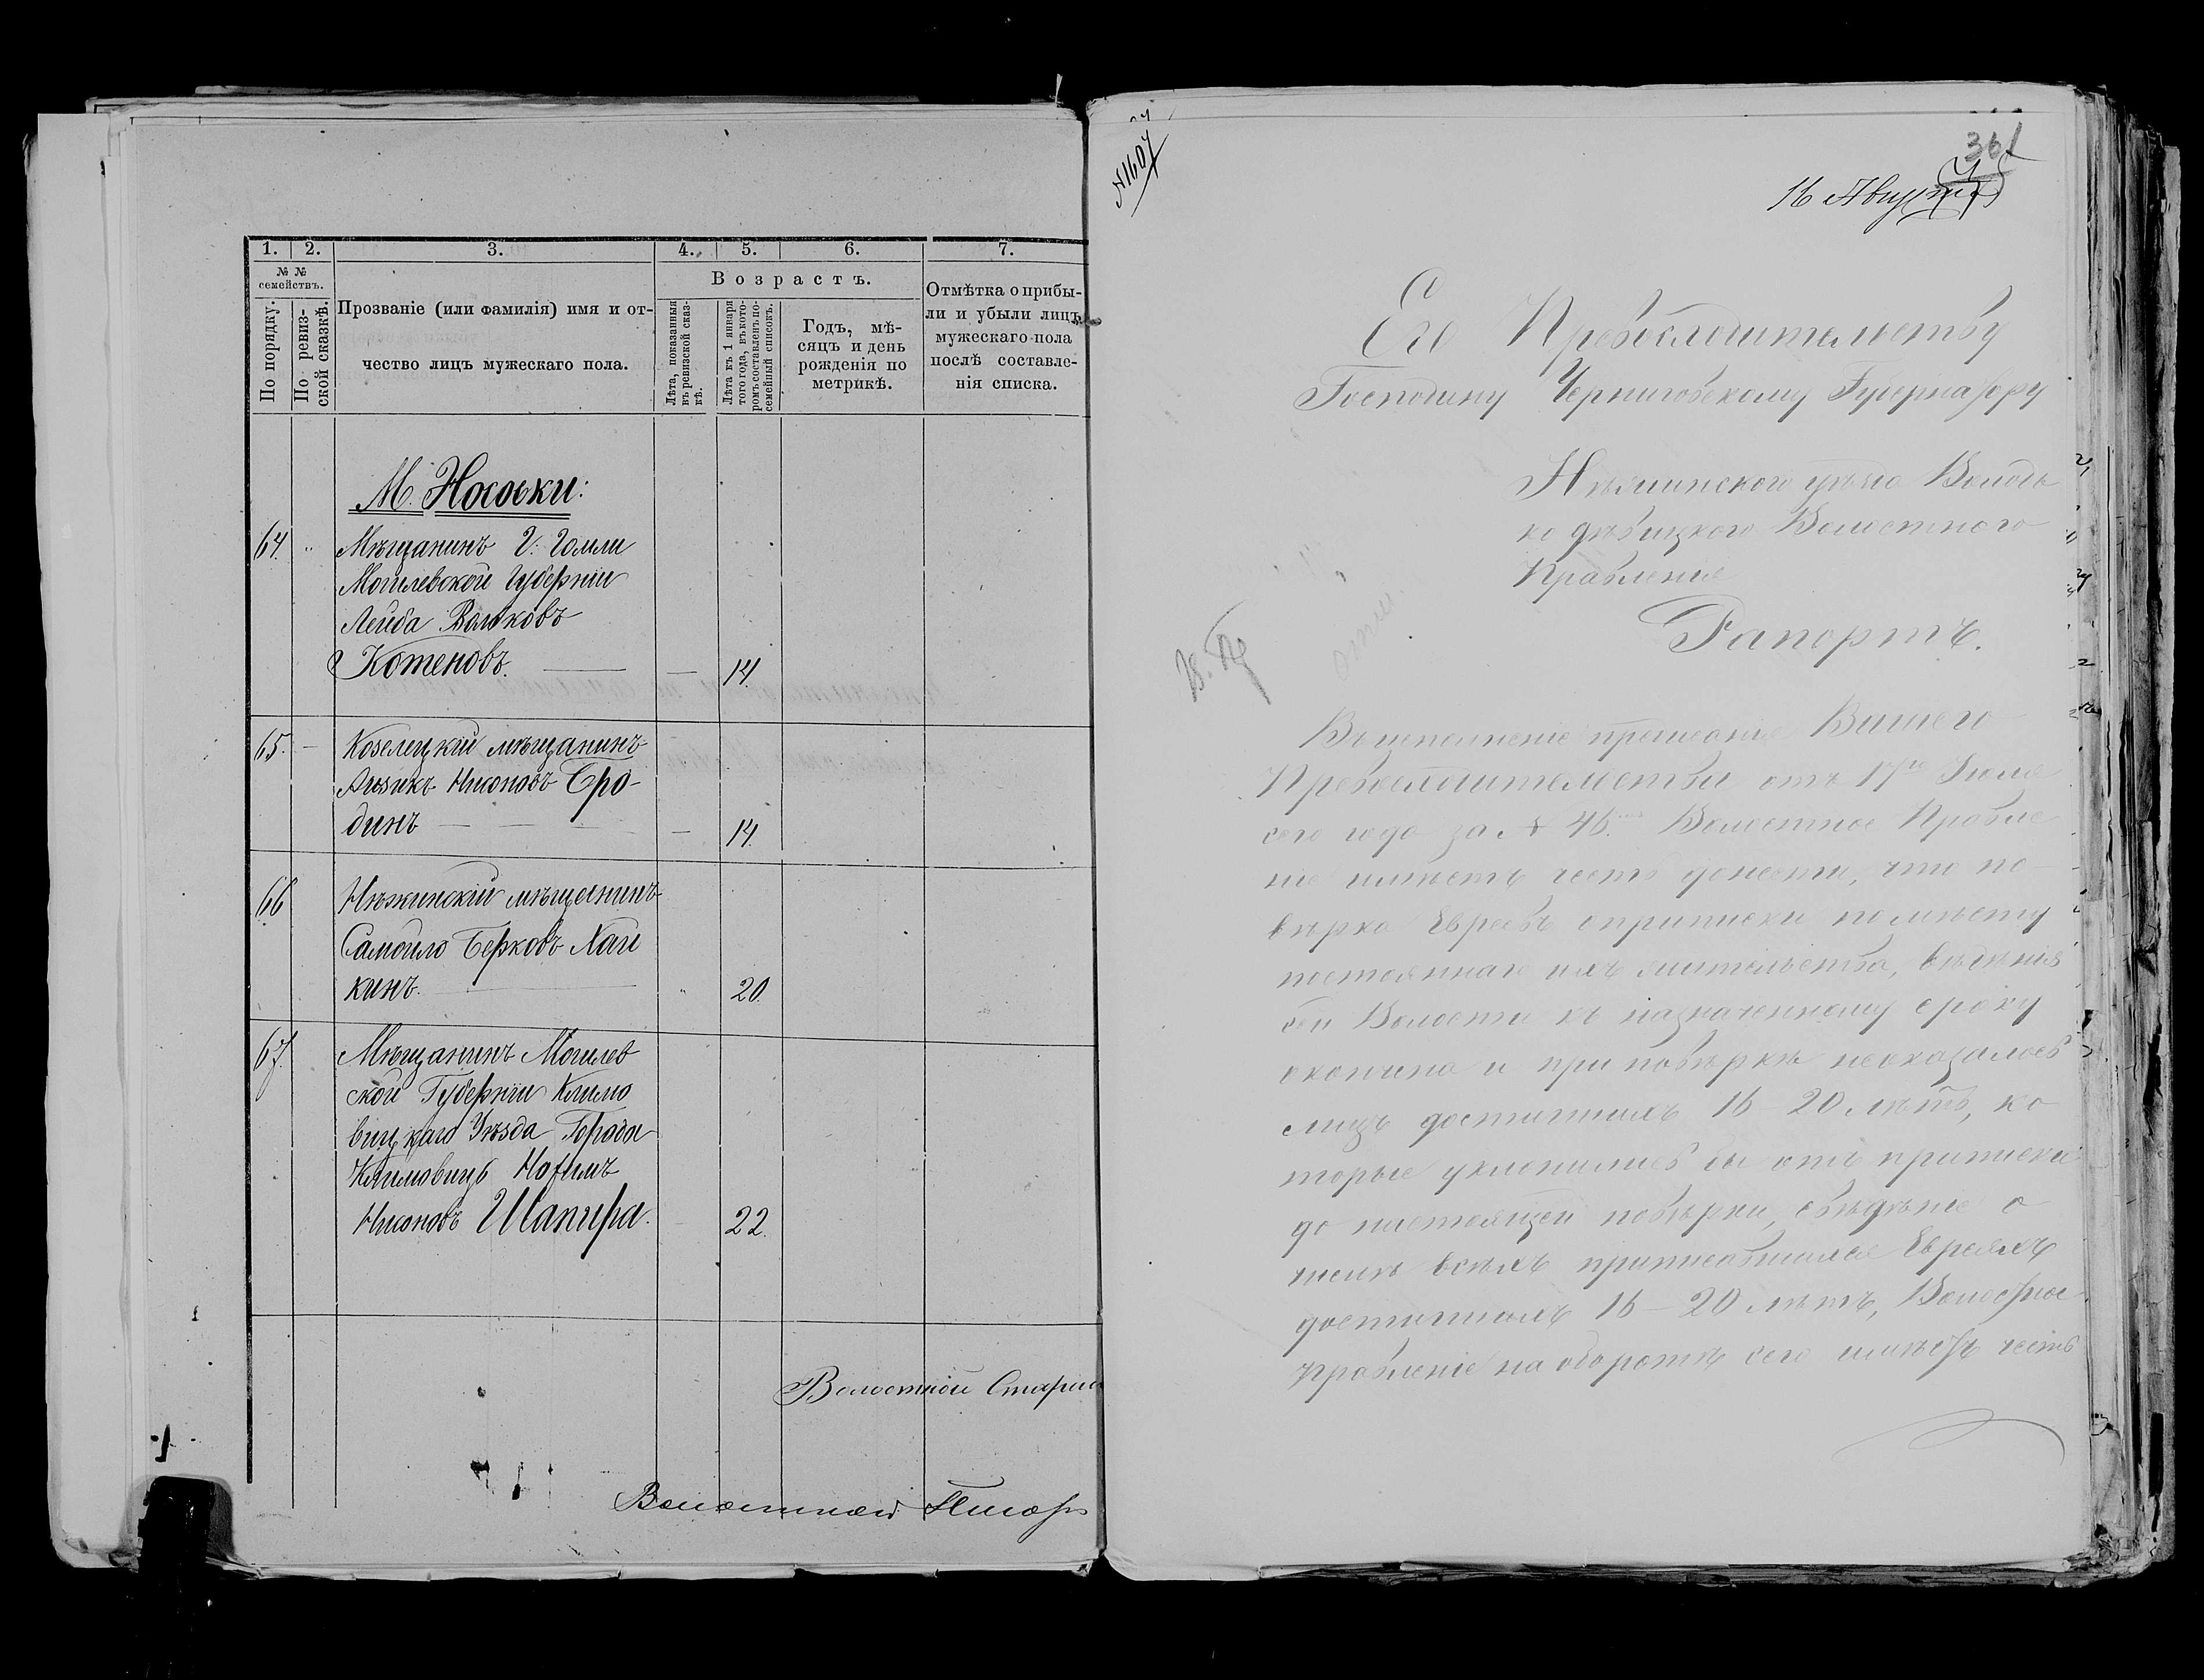 1. 2. 3. 4. 5. 6. 7.
№ №
семействъ.
По порядку.
По ревиз-
ской сказкѣ.
Прозваніе (или фамилія) имя и от-
чество лицъ мужескаго пола.
Возрастъ.
Лѣта, показанныя
въ ревизской сказ-
кѣ.
Лѣта къ 1 января
того года, въ кото-
ромъ составленъ по-
семейный списокъ.
Годъ, мѣ-
сяцъ и день
рожденія по
метрикѣ.
Отмѣтка о прибы-
ли и убыли лицъ
мужескаго пола
послѣ составле-
нія списка.
М. Носовки:
64. Мѣщанинъ Г. Гомли
Могилевской Губерніи
Лейба Вольковъ
Котеновъ. 14.
65. Козелецкій мѣщанинъ
Нисоновъ Бро-
динъ 14.
66 Нѣжинскій мѣщанинъ
Самойло Берковъ Хай
кинъ. 20.
67. Мѣщанинъ Могилев
ской Губерніи Климо
вицкаго Уѣзда Города
Климовичь
Нисоновъ Шапира. 22.
Волостной Старши
Волостной Писарь
№1607
361
16 Августа
Его Превосходительству
Господину Черниговскому Губернатору
Нѣжинского уѣзда Володь
ко дѣвицкого Волостного
Правленія
Рапортъ.
Въ исполненіе предписанія Вашего
Превосходительства отъ 17го Іюля
сего года за № 46. Волостное Правле
ніе имѣетъ честь донести, что по-
вѣрка Евреевъ о припискѣ по мѣсту
постояннаго ихъ жительства, вѣдѣнія
сей Волости къ назначенному сроку
окончена и при повѣркѣ неоказалось
лицъ достигшихъ 16-20 лѣтъ, ко
торые уклонились бы отъ приписки
до настоящей повѣрки, свѣдѣніе о
всѣхъ приписавшихся Евреяхъ
достигшихъ 16-20 лѣтъ, Волостное
правленіе на оборотѣ сего имѣетъ честь